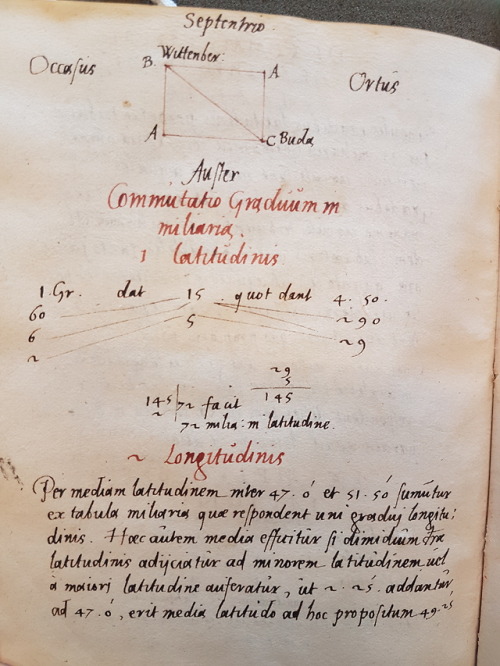 Septentrio.
Occasus
B. Wittenber.
A
Ortus
A
C Buda
Auster
Commutatio Graduum in
miliaria.
1 Latitudinis
1. Gr. dat 15. quot dant 4. 50.
60 5 290
6 29
2
29
5
145 72 facit 145
2
72 milia: in latitudine.
2 Longitudinis
Per mediam latitudinem inter 47. 0 et 51. 50 sumuntur
ex tabula miliaria quae respondent uni gradui longitu:
dinis. Haec autem media efficitur si dimidium
latitudinis adijciatur ad minorem latitudinem, uel
a maiori latitudine auferatur, ut 2. 25. addantur
ad 47. 0, erit media latitudo ad hoc propositum 49. 25